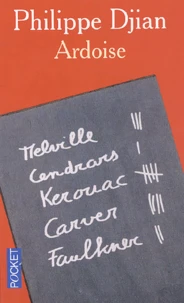 Philippe Djian
Ardoise
Melville
Cendrars
Kerouac
Carver
Faulkner
POCKET